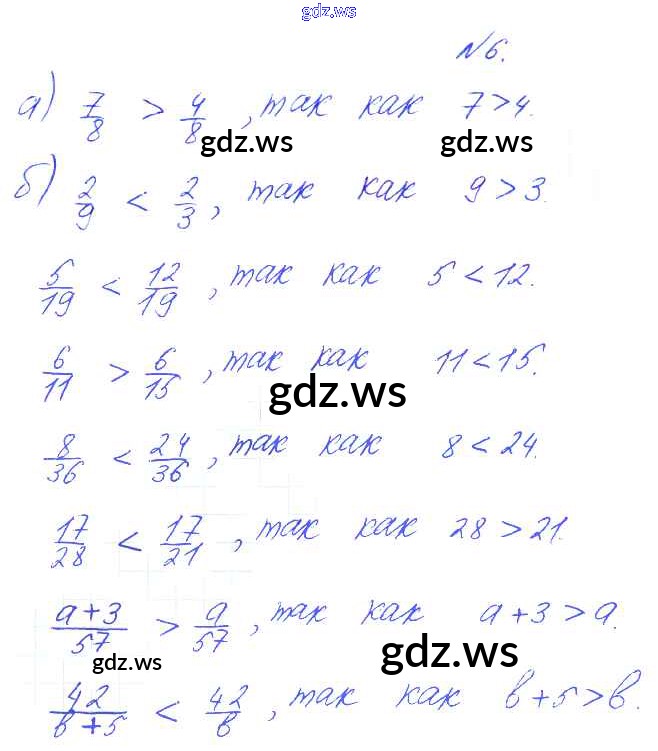 gdz.ws
№6.
а) 7/8 > 4/8, так как 7 > 4.
gdz.ws gdz.ws
б) 2/9 < 2/3, так как 9 > 3.
5/19 < 12/19, так как 5 < 12.
6/11 > 6/15, так как 11 < 15.
gdz.ws
8/36 < 24/36, так как 8 < 24.
17/28 < 17/21, так как 28 > 21.
a+3/57 > a/57, так как a+3 > a.
gdz.ws gdz.ws
42/в+5 < 42/в, так как в+5 > в.